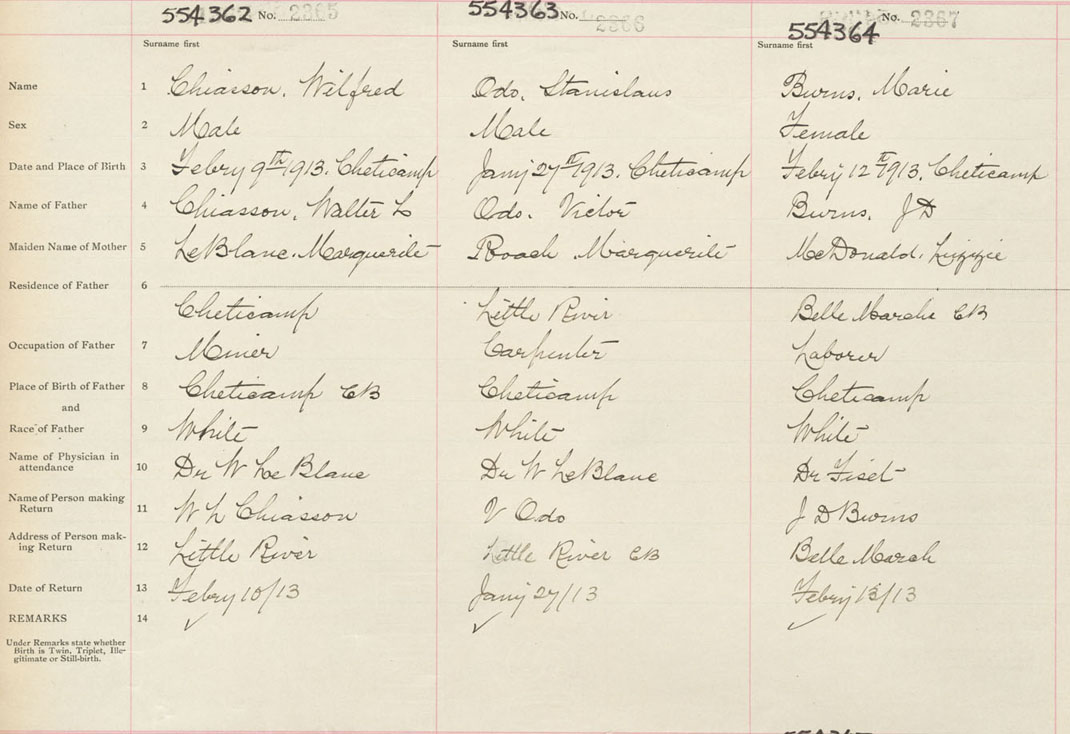 554362 No. 2365 554363 No. 2366 554364 No. 2367
Surname first Surname first Surname first
Name 1 Chiasson, Wilfred Odo, Stanislaus Burns, Marie
Sex 2 Male Male Female
Date and Place of Birth 3 Febry 9th 1913. Cheticamp Jany 27th 1913. Cheticamp Febry 12th 1913. Cheticamp
Name of Father 4 Chiasson, Walter L Odo. Victor Burns, J D
Maiden Name of Mother 5 LeBlanc. Marguerite Roach Marguerite McDonald. Lizzie
Residence of Father 6
Cheticamp Little River Belle Marche CB
Occupation of Father 7 Miner Carpenter Laborer
Place of Birth of Father 8 Cheticamp CB Cheticamp Cheticamp
and
Race of Father 9 White White White
Name of Physician in
attendance 10 Dr W Le Blanc Dr W LeBlanc Dr Fiset
Name of Person making
Return 11 W L Chiasson V Odo J D Burns
Address of Person mak-
ing Return 12 Little River Little River CB Belle March
Date of Return 13 Febry 10/13 Jany 27/13 Febry 13/13
REMARKS 14
Under Remarks state whether
Birth is Twin, Triplet, Ille-
gitimate or Still-birth.